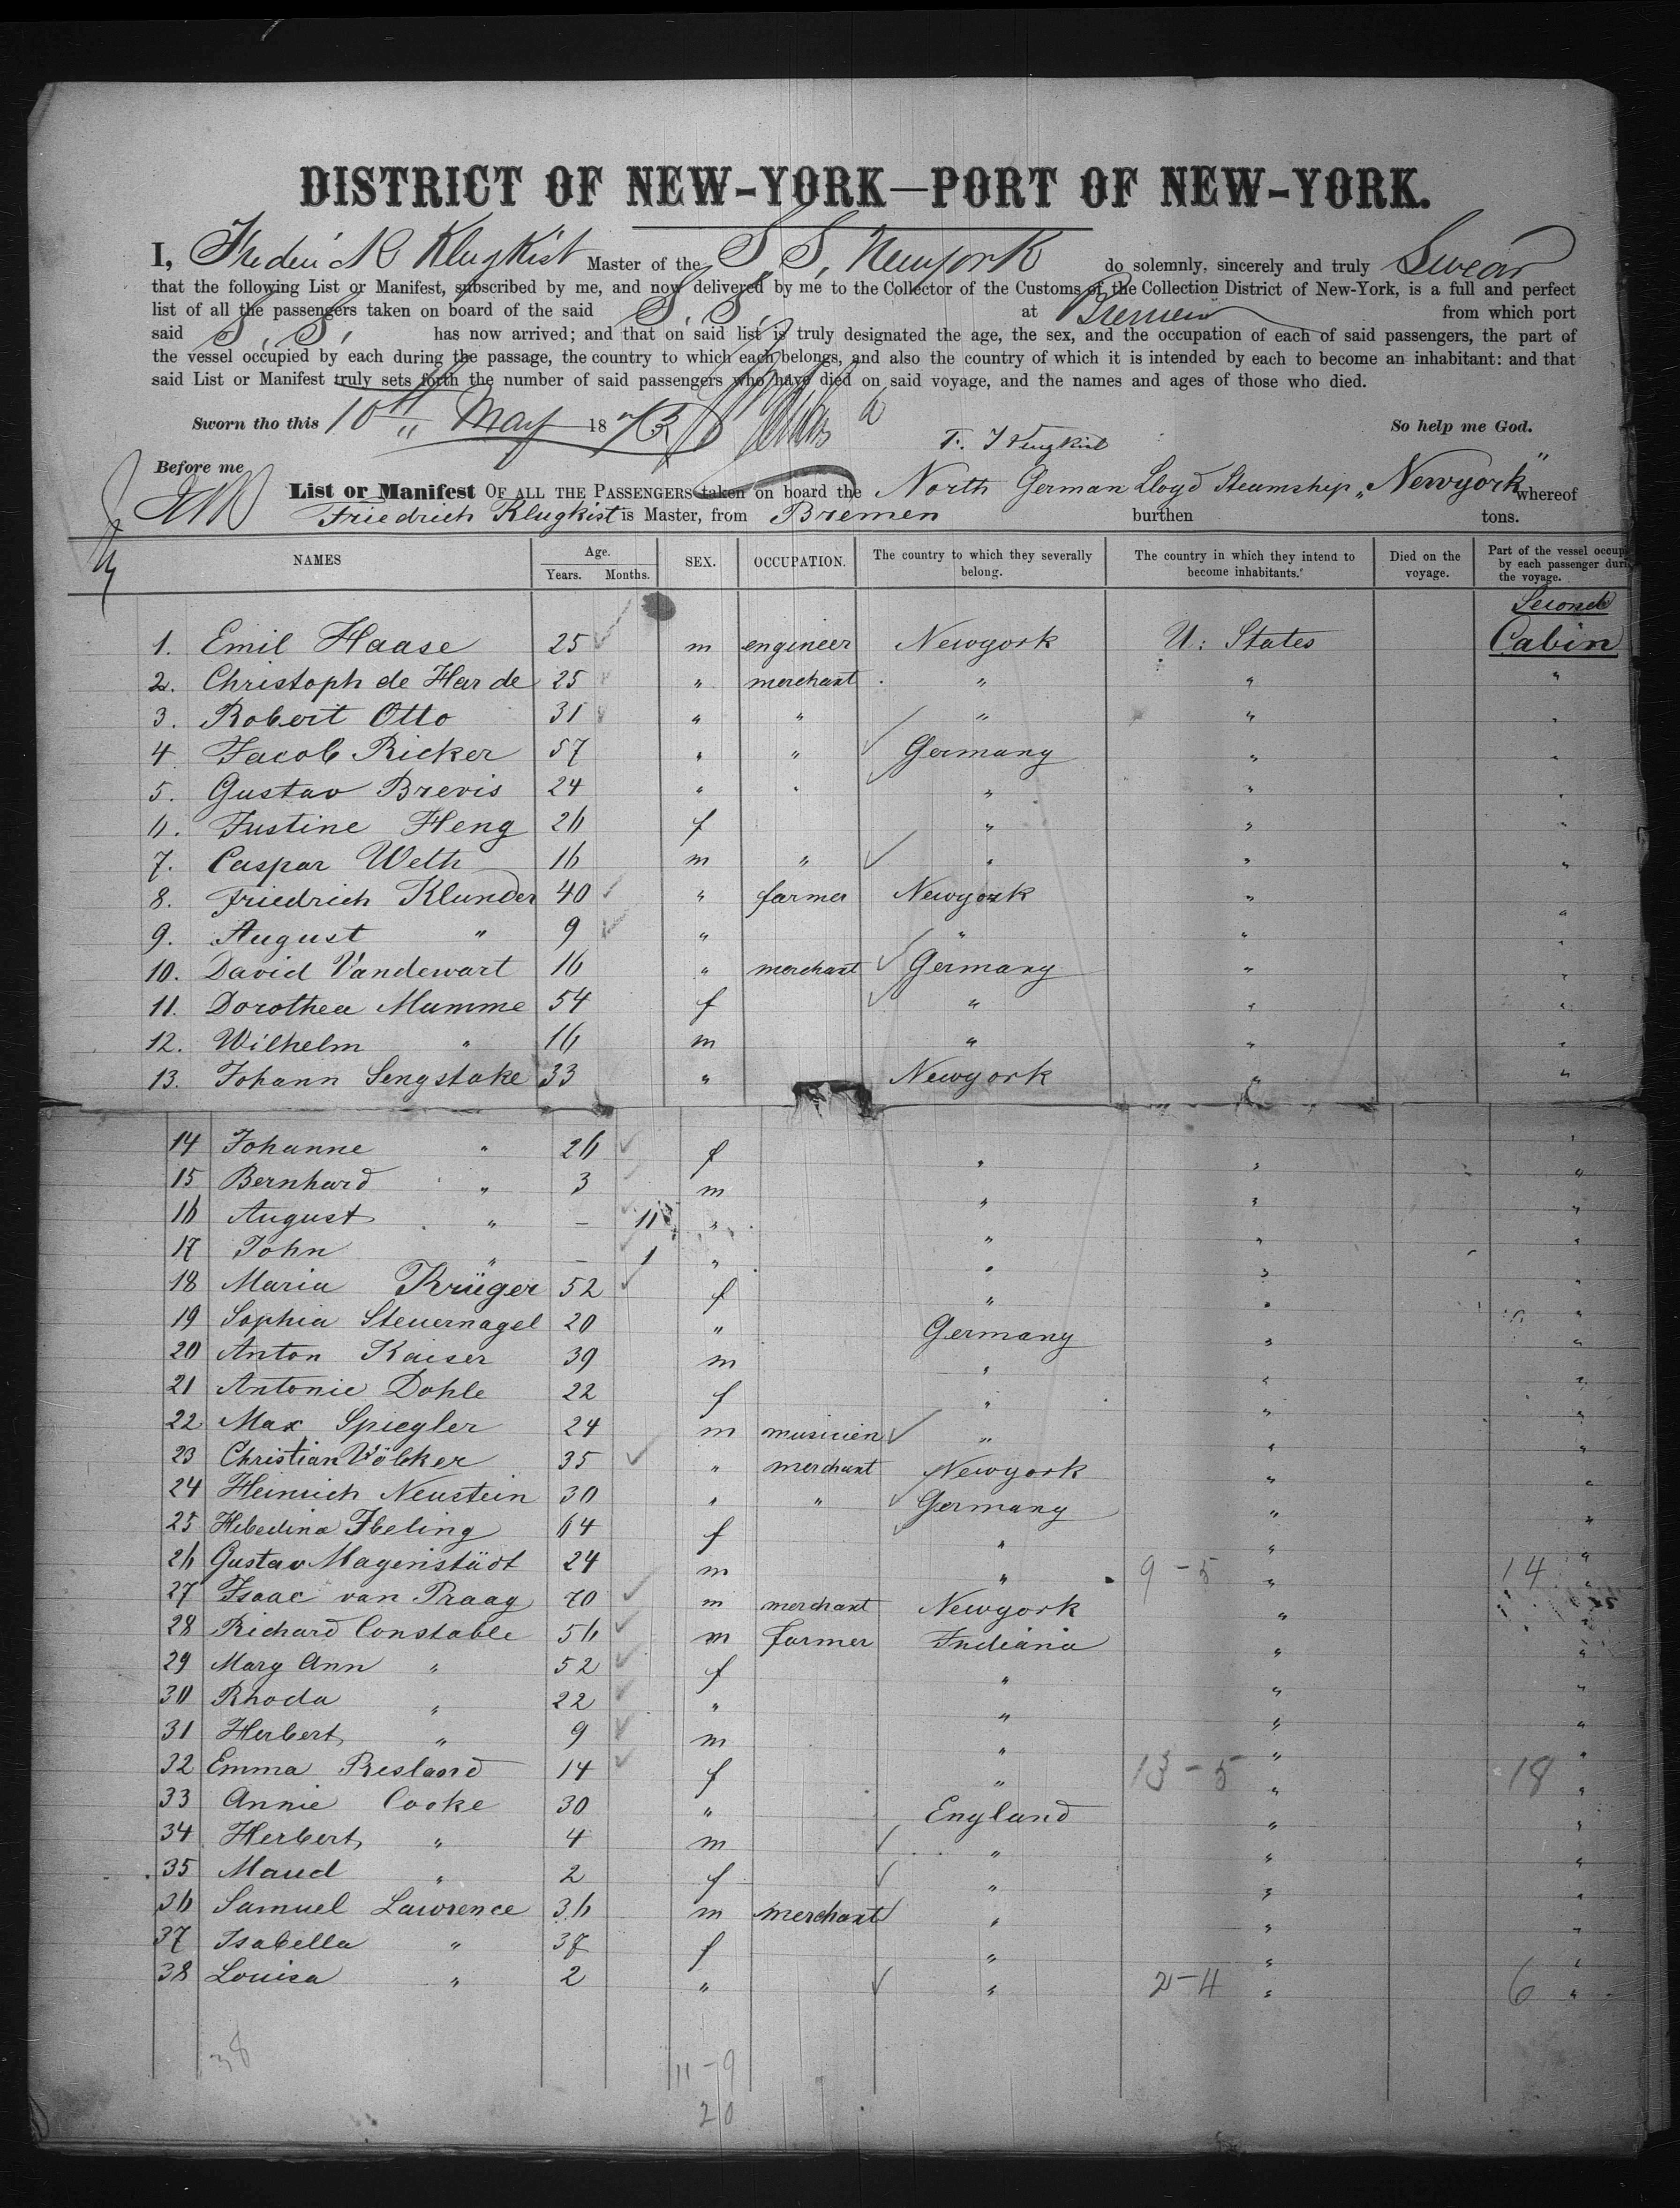 DISTRICT OF NEW-YORK—PORT OF NEW-YORK.
I, Frederick Klugkist Master of the S. S. Newyork do solemnly, sincerely and truly Swear
that the following List or Manifest, subscribed by me, and now delivered by me to the Collector of the Customs of the Collection District of New-York, is a full and perfect
list of all the passengers taken on board of the said S. S. at Bremen from which port
said S. S. has now arrived; and that on said list is truly designated the age, the sex, and the occupation of each of said passengers, the part of
the vessel occupied by each during the passage, the country to which each belongs, and also the country of which it is intended by each to become an inhabitant: and that
said List or Manifest truly sets forth the number of said passengers who have died on said voyage, and the names and ages of those who died.
Sworn tho this 10th May 1873 So help me God.
F. Klugkist
Before me
List or Manifest OF ALL THE PASSENGERS taken on board the North German Lloyd Steamship „Newyork" whereof
Friedrich Klugkist is Master, from Bremen burthen tons.
NAMES Age. Years. Months. SEX. OCCUPATION. The country to which they severally belong. The country in which they intend to become inhabitants. Died on the voyage. Part of the vessel occup by each passenger duri the voyage.
Second
1. Emil Haase 25 m engineer Newyork U: States Cabin
2. Christoph de Harde 25 " merchant " " "
3. Robert Otto 31 " " " " "
4 Jacob Ricker 57 " " Germany " "
5. Gustav Brevis 24 " " " " "
6. Justine Heng 26 f " " "
7. Caspar Weth 16 m " " " "
8. Friedrich Klunder 40 " farmer Newyork " "
9. August " 9 " " " "
10. David Vandewart 16 " merchant Germany " "
11. Dorothea Mumme 54 f " " "
12. Wilhelm " 16 m " " "
13. Johann Sengstake 33 " Newyork " "
14 Johanne " 26 f " " "
15 Bernhard " 3 m " " "
16 August " – 11 " " " "
17 John " – 1 " " " "
18 Maria Krüger 52 f " " "
19 Sophia Steuernagel 20 " Germany " "
20 Anton Kaiser 39 m " " "
21 Antonie Dohle 22 f " " "
22 Max Spiegler 24 m musicien " " "
23 Christian Völcker 35 " merchant Newyork " "
24 Heinrich Neustein 30 " " Germany " "
25 Ibeling 64 f " " "
26 Gustav Magenstädt 24 m " 9-5 " 14 "
27 Isaac van Praag 70 m merchant Newyork " "
28 Richard Constable 56 m farmer Indiana " "
29 Mary Ann " 52 f " " "
30 Rhoda " 22 " " " "
31 Herbert " 9 m " " "
32 Emma 14 f " 13-5 " 18 "
33 Annie Cooke 30 " England " "
34 Herbert " 4 m " " "
35 Maud " 2 f " " "
36 Samuel Lawrence 36 m merchant " " "
37 Isabella " 37 f " " "
38 Louisa " 2 " " 2-4 " 6 "
38 11-9
20